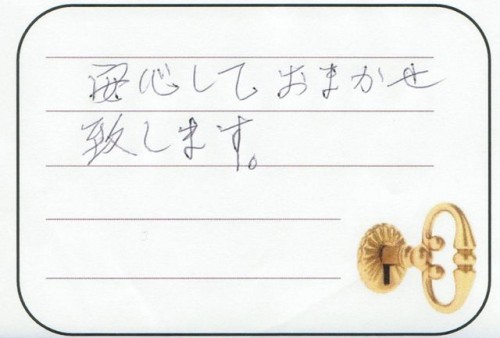 安心しておまかせ
致します。